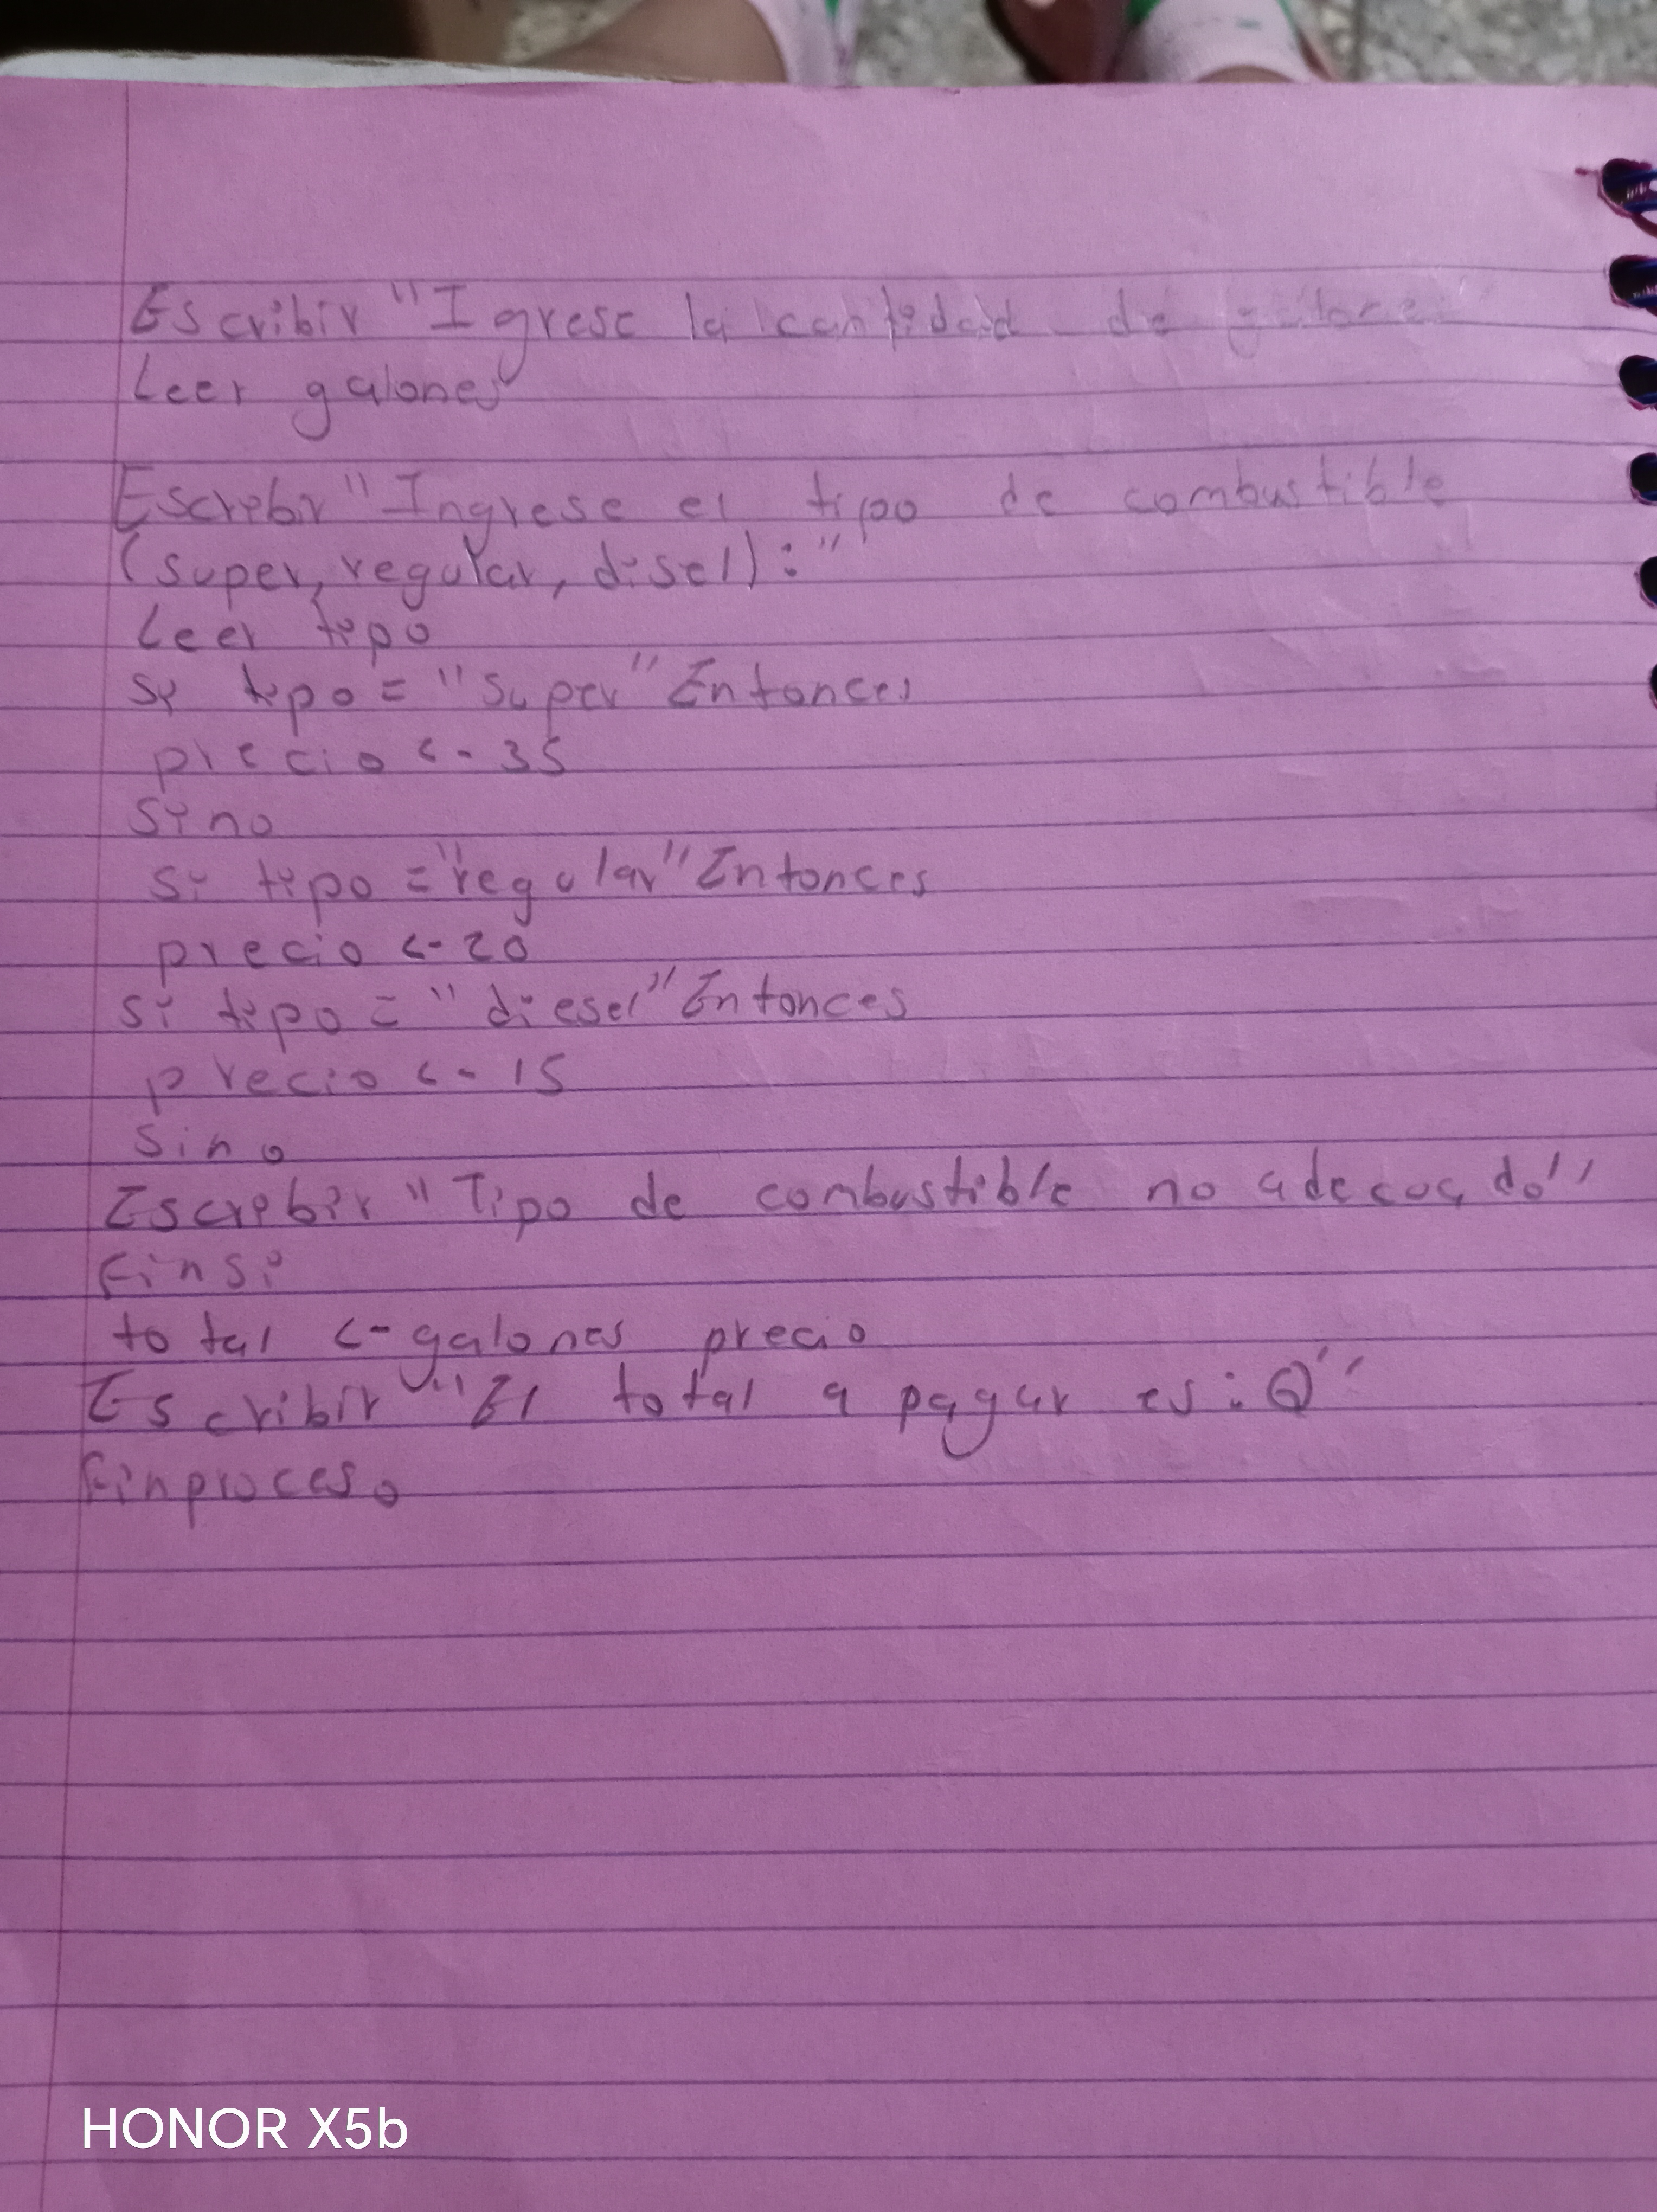 Escribir "Igrese la cantidad de
Leer galones
Escribir "Ingrese el tipo de combustible
(super, regular, disel):"
Leer tipo
Si tipo = "Super" Entonces
precio <- 35
Sino
Si tipo = "regular" Entonces
precio <- 20
Si tipo = "diesel" Entonces
precio <- 15
Sino
Escribir "Tipo de combustible no adecuado"
Finsi
total <- galones precio
Escribir "El total a pagar es: Q"
Finproceso
HONOR X5b